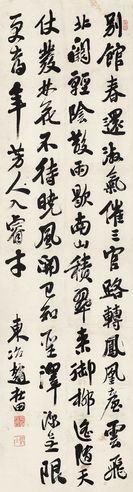 別館春還淑氣催三宮路轉鳳凰臺雲飛
北闕輕陰散雨歇南山積翠來御柳遙隨天
仗發林花不待曉風開已知聖澤深無限
更喜年芳入睿才 東冶趙在田